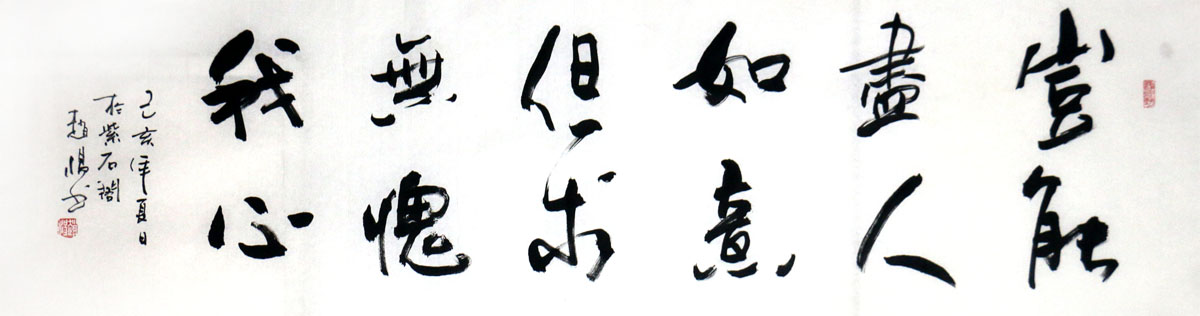 豈能
盡人
如意
但求
無愧
我心
己亥年夏日
於紫石閣
趙